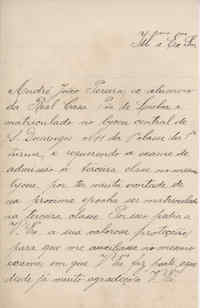 Ill.mo e Ex.mo Snr
André João Pereira, ex alumno
da Real Casa Pia de Lisboa e
matriculado no lyceu central de
S. Domingos nº 101 da 1ª classe da 1ª
turma, e requerendo o exame de
admissão á terceira classe no mesmo
lyceu, por ter muita vontade de
na proxima epocha ser matriculado
na terceira classe. Por isso pedia a
V. Ex.ª a sua valorosa protecção
para que me auxiliasse no mesmo
exame, em que V. Ex.ª faz parte, e que
desde já muito agradeço a V. Ex.ª